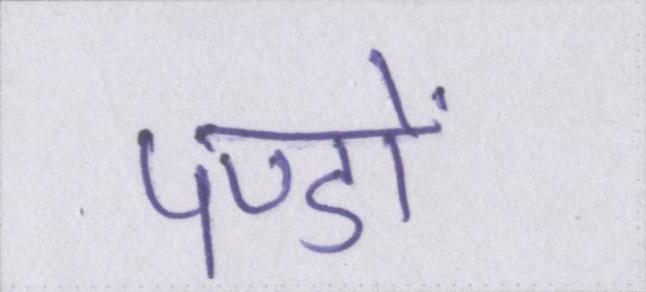 पण्डों